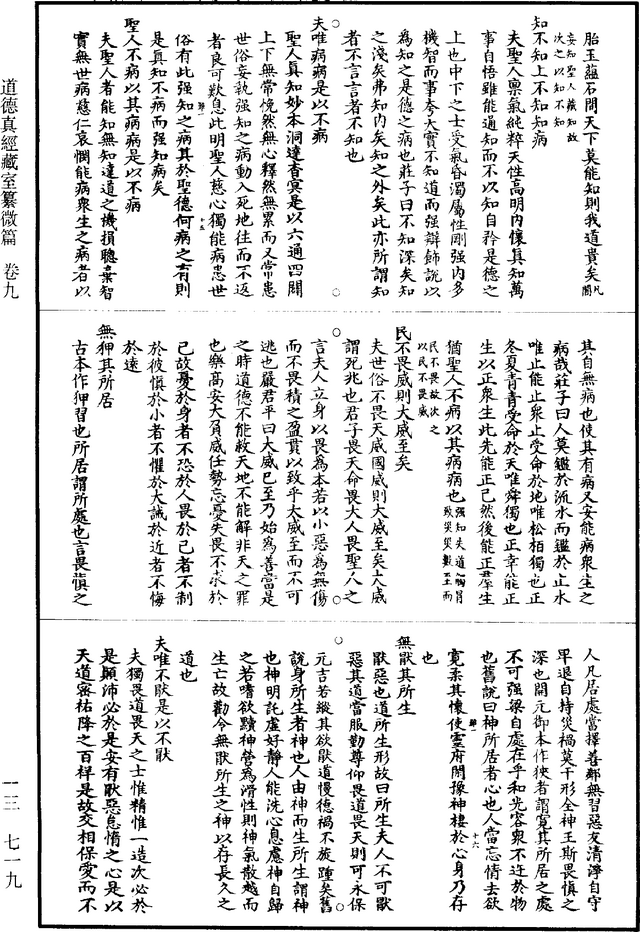 胎玉蘊石間天下莫能知則我道貴矣凡聞
妄知聖人藏知故
次之以知不知
知不知上不知知病
夫聖人禀氣純粹天性高明內懷真知萬
事自悟雖能通知而不以知自矜是德之
上也中下之士受氣昏濁屬性剛强內多
機智而事夸大實不知道而强辯飾說以
為知之是德之病也莊子曰不知深矣知
之淺矣弗知內矣知之外矣此亦所謂知
者不言言者不知也
夫唯病病是以不病
聖人真知妙本洞達杳冥是以六通四闢
上下無常恱然無心釋然無累而又常患
世俗妄執强知之病動入死地往而不返
者良可歎息此明聖人慈心獨能病患世
俗有此强知之病其於聖德何病之有則
是真知不病而强知病矣
聖人不病以其病病是以不病
夫聖人者能知無知達道之機損聰棄智
實無世病慈仁哀憫能病衆生之病者以
道德真經藏室纂微篇 卷九
其自無病也使其有病又安能病衆生之
病哉莊子曰人莫鑑於流水而鑑於止水
唯止能止衆止受命於地唯松栢獨也正
冬夏青青受命於天唯舜獨也正幸能正
生以正衆生此先能正己然後能正羣生
猶聖人不病以其病病也强知失道
民不畏故次之
以民不畏威
民不畏威則大威至矣
夫世俗不畏天威國威則大威至矣大威
謂死兆也君子畏天命畏大人畏聖人之
言夫人立身以畏為本若以小惡為無傷
而不畏積之盈貫以致乎大威至而不可
逃也嚴君平曰大威已至乃始為善當是
之時道德不能救天地不能解非天之罪
也樂高安大負威任勢忘憂失畏不求於
己故憂於身者不恐於人畏於己者不制
於彼慎於小者不懼於大誡於近者不悔
於遠
無狎其所居
古本作狎習也所居謂所處也言畏慎之
人凡居處當擇善鄰無習惡友清淨自守
卑退自持災禍莫干形全神王斯畏慎之
深也開元御本作狹者謂寬其所居之處
不可强梁自處在乎和光容衆不迕於物
也舊說曰神所居者心也人當忘情去欲
寬柔其懷使靈府閒豫神棲於心身乃存
也
無猒其所生
猒惡也道所生形故曰所生夫人不可猒
惡其道當服勤尊仰畏道畏天則可永保
元吉若縱其欲猒道慢德禍不旋踵矣舊
說身所生者神也人由神而生所生謂神
也神明託虛好靜人能洗心息慮神自歸
之若嗜欲黷神營為滑性則神氣散越而
生亡故勸令無猒所生之神以存長久之
道也
夫唯不猒是以不猒
夫獨畏道畏天之士惟精惟一造次必於
是顛沛必於是安有猒惡怠惰之心是以
天道密祐降之百祥是故交相保愛而不
一三 七一九